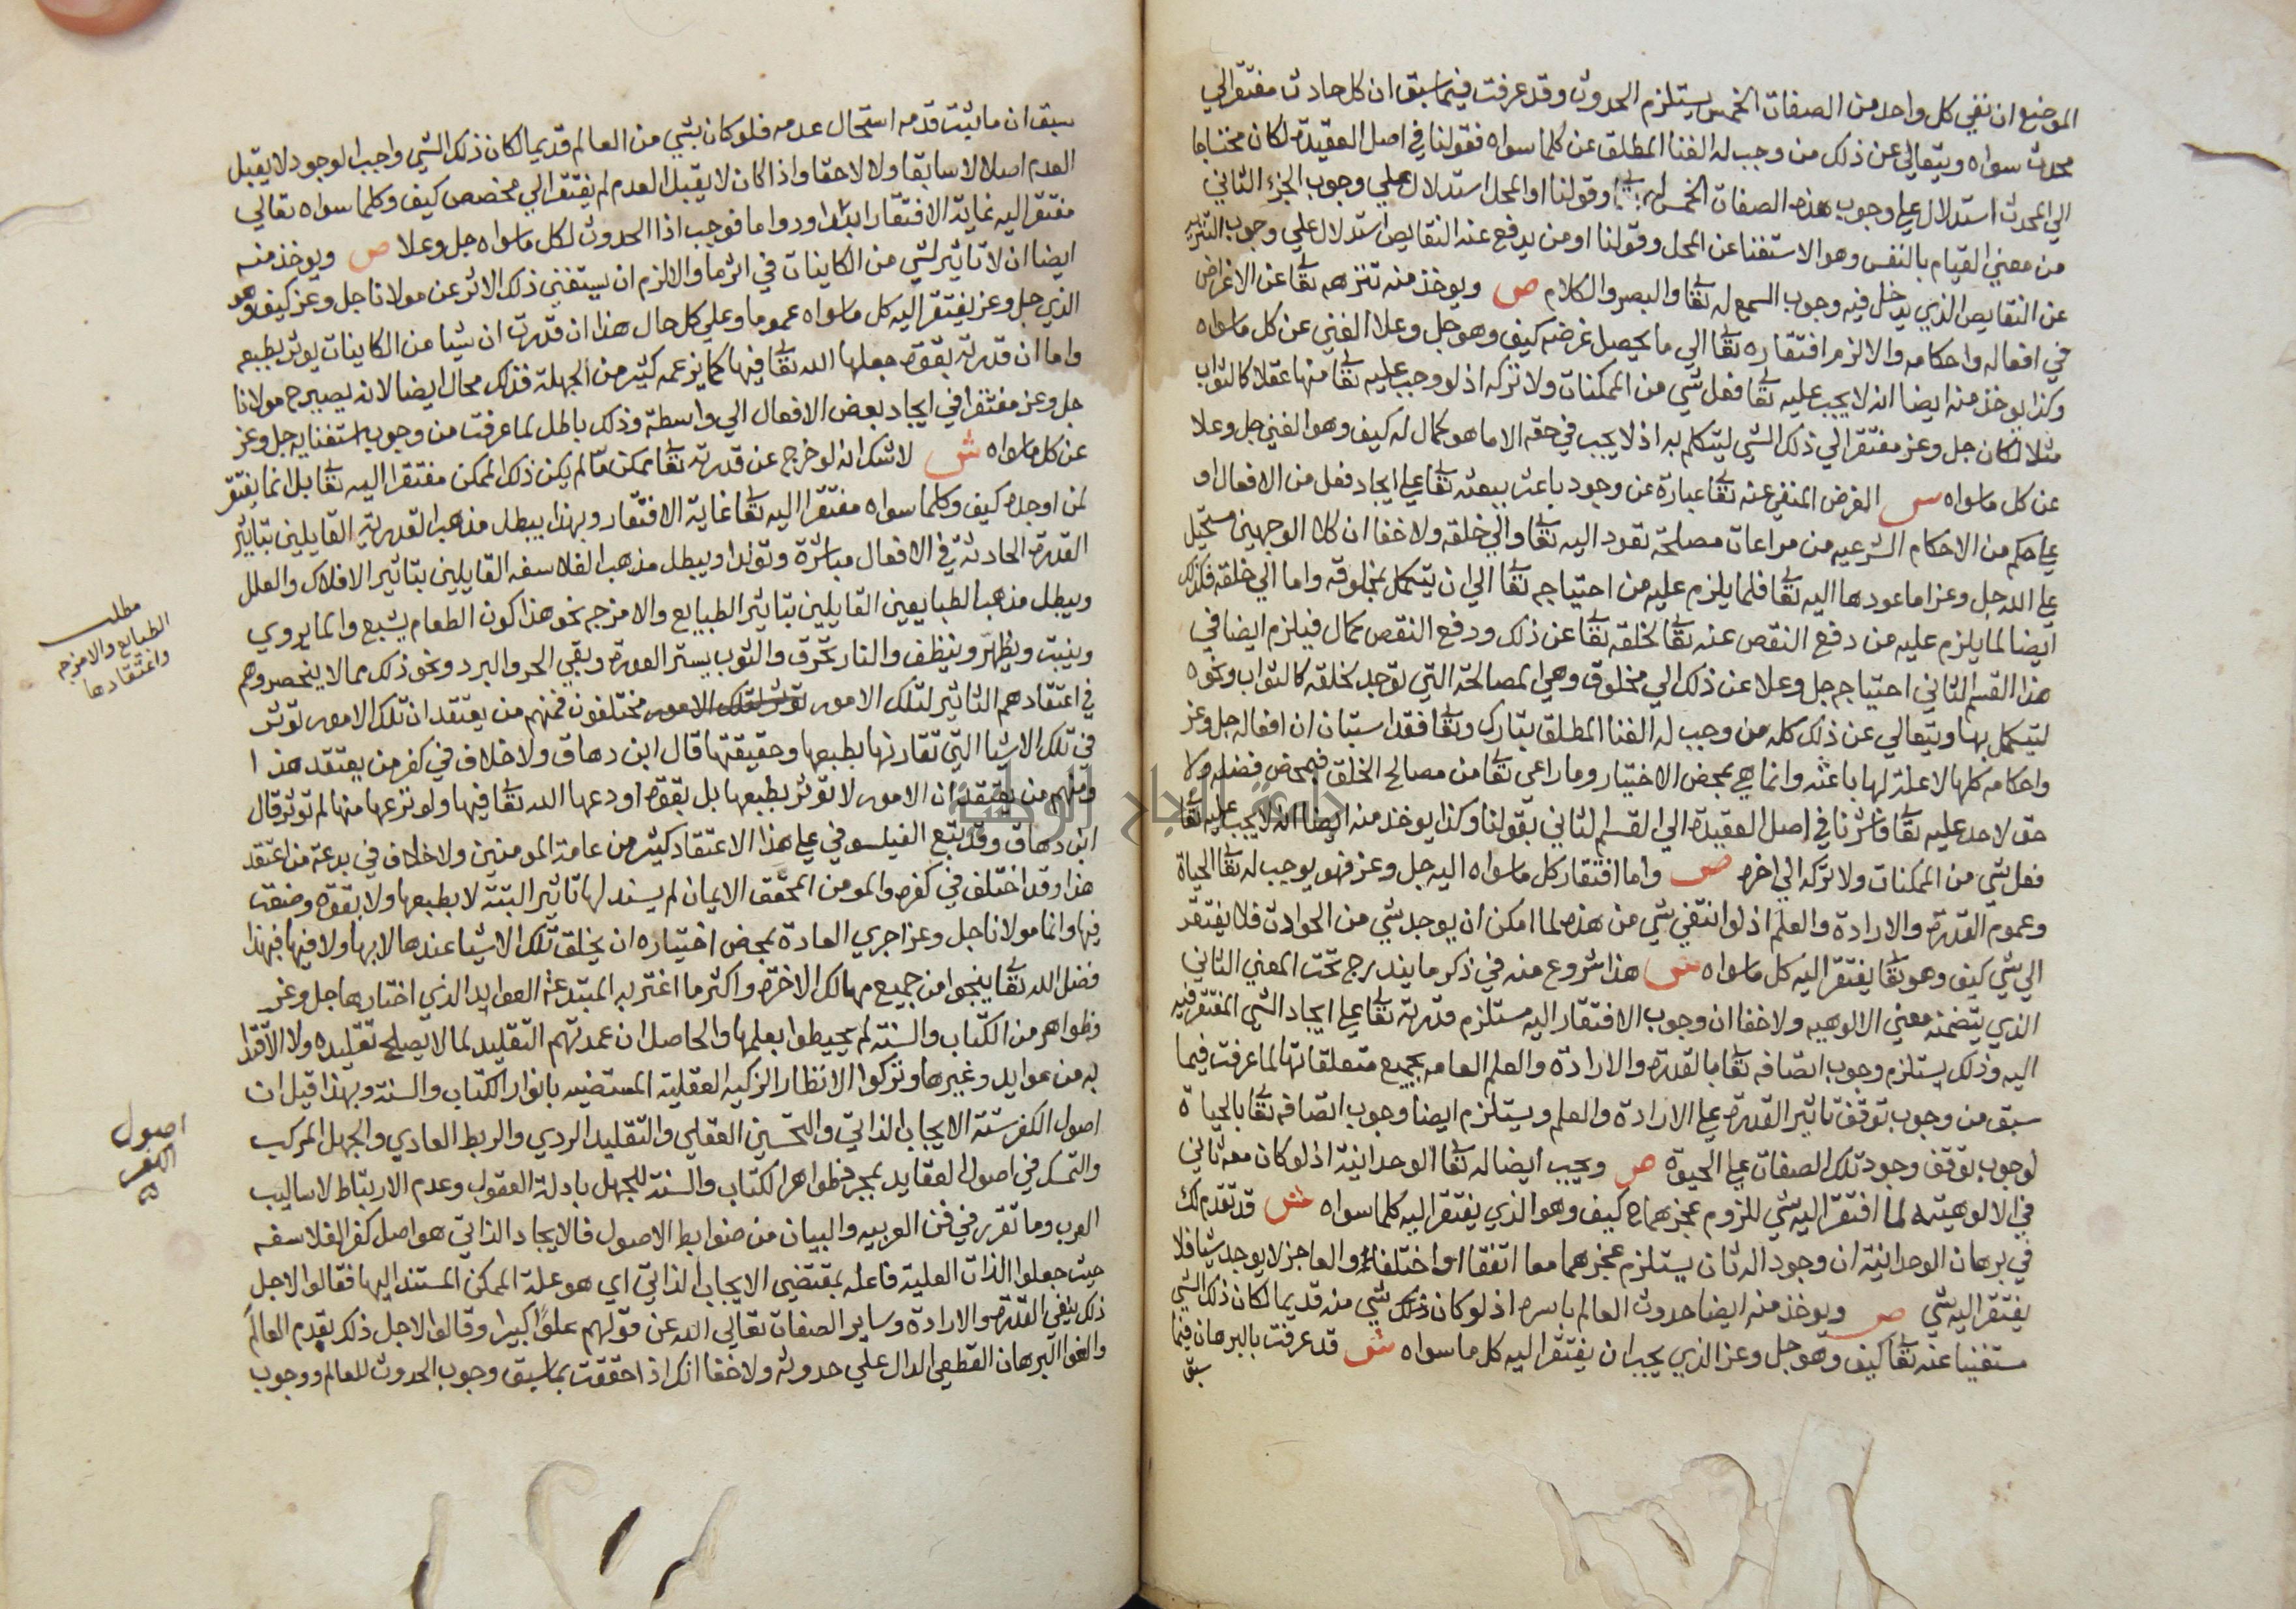 الموضع ان نفي كل واحد من الصفات الخمس يستلزم الحدوث وقد عرفت فيما سبق ان كل حادث مفتقر الي
محدث سواه ويتعالي عن ذلك من وجب له الغنا المطلق عن كلما سواه فقولنا في اصل العقيدة لكان محتاجا
الي المحدث استدلال علي وجوب هذه الصفات الخمس له تعالي وقولنا او المحل استدلال علي وجوب الجزء الثاني
من معني القيام بالنفس وهو الاستغنا عن المحل وقولنا او من يدفع عنه النقايص استدلال علي وجوب التنزيه
عن النقايص الذي يدخل فيه وجوب السمع له تعا والبصر والكلام ص ويوخذ منه تنزهه تعا عن الاغراض
في افعاله واحكامه والا لزم افتقاره تعا الي ما يحصل غرضه كيف وهو جل وعلا الغني عن كل ما سواه
وكذا يوخذ منه ايضا انه لا يجب عليه تعا فعل شي من الممكنات ولا تركه اذ لو وجب عليه تعا منها عقلا كالثواب
مثلا لكان جل وعز مفتقرا الي ذلك الشي ليتكلم به اذ لا يجب في حقه الا ما هو كمال له كيف وهو الغني جل وعلا
عن كل ما سواه س الغرض المنفي عنه تعا عبارة عن وجود باعث يبعثه تعا علي ايجاد فعل من الافعال او
علي حكم من الاحكام الشرعيه من مراعات مصلحة تعود اليه تعا والي خلقه ولا خفا ان كلا الوجهين مستحيل
علي الله جل وعز اما عودها اليه تعا فلما يلزم عليه من احتياجه تعا الي ان يتكمل بمخلوقه واما الي خلقه فكذلك
ايضا لما يلزم عليه من دفع النقص عنه تعا لخلقه تعا عن ذلك ودفع النقص كمال فيلزم ايضا في
هذا القسم الثاني احتياجه جل وعلا عن ذلك الي مخلوق وهي المصالحة التي توجد لخلقه كالثواب ونحوه
ليتكمل بها ويتعالي عن ذلك كله من وجب له الغنا المطلق تبارك وتعا فقد استبان ان افعاله جل وعز
واحكامه كلها لا علة لها باعثه وانما هي بمحض الاختيار وما راعي تعا من مصالح الخلق فبمحض فضله ولا
حق لاحد عليه تعا واشرنا في اصل العقيدة الي القسم الثاني بقولنا وكذا يوخذ منه ايضا انه لا يجب عليه تعا
فعل شي من الممكنات ولا تركه الي اخره ص واما افتقار كل ما سواه اليه جل وعز فهو يوجب له تعا الحياة
وعموم القدرة والارادة والعلم اذ لو انتفي شي من هذه لما امكن ان يوجد شي من الحوادث فلا يفتقر
الي شي كيف وهو تعا يفتقر اليه كل ما سواه ش هذا شروع منه في ذكر ما يندرج تحت المعني الثاني
الذي يتضمنه معني الالوهيه ولا خفا ان وجوب الافتقار اليه مستلزم قدرته تعا علي ايجاد الشي المفتقر فيه
اليه وذلك يستلزم وجوب اتصافه تعا بالقدرة والارادة والعلم العامه بجميع متعلقاتها لما عرفت فيما
سبق من وجوب توقف تاثير القدرة علي الارادة والعلم ويستلزم ايضا وجوب اتصافه تعا بالحياة
لوجوب توقف وجود تلك الصفات علي الحيوة ص ويجب ايضا له تعا الوحدانية اذ لو كان معه ثاني
في الالوهيته لما افتقر اليه شي للزوم عجزهما ح كيف وهو الذي يفتقر اليه كلما سواه ش قد تقدم لك
في برهان الوحدانية ان وجود اله ثان يستلزم عجزهما معا اتفقا او اختلفا والعاجز لا يوجد شيا فلا
يفتقر اليه شي ص ويوخذ منه ايضا حدوث العالم باسره اذ لو كان ذلك شي منه قديما لكان ذلك الشي
مستغنيا عنه تعا كيف وهو جل وعز الذي يجب ان يفتقر اليه كل ما سواه ش قد عرفت بالبرهان فيما
سبق
سبق ان ما ثبت قدمه استحال عدمه فلو كان شي من العالم قديما لكان ذلك الشي واجب الوجود لا يقبل
العدم اصلا لا سابقا ولا لاحقا واذا كان لا يقبل العدم لم يفتقر الي مخصص كيف وكلما سواه تعالي
مفتقر اليه غاية الافتقار ابتدا ودواما فوجب اذا الحدوث لكل ما سواه جل وعلا ص ويوخذ منه
ايضا ان لا تاثير لشي من الكاينات في اثر ما والا لزم ان يستغني ذلك الاثر عن مولانا جل وعز كيف وهو
الذي جل وعز يفتقر اليه كل ما سواه عموما وعلي كل حال هذا ان قدرت ان شيا من الكاينات يوثر بطبعه
واما ان قدرته بقوة جعلها الله تعا فيها كما يزعمه كثير من الجهلة فذلك محال ايضا لانه يصير ح مولانا
جل وعز مفتقرا في ايجاد بعض الافعال الي واسطة وذلك باطل لما عرفت من وجوب استغنايه جل وعز
عن كل ما سواه ش لا شك انه لو خرج عن قدرته تعا ممكن ما لم يكن ذلك الممكن مفتقرا اليه تعا بل انما يفتقر
لمن اوجده كيف وكلما سواه مفتقر اليه تعا غاية الافتقار وبهذا يبطل مذهب القدرية القايلين بتاثير
القدرة الحادثة في الافعال مباشرة وتولدا ويبطل مذهب الفلاسفه القايلين بتاثير الافلاك والعلل
ويبطل مذهب الطبايعين القايلين بتاثير الطبايع والامزجه نحو هذا كون الطعام يشبع والما يروي
وينبت ويطهر وينظف والنار تحرق والثوب يستر العورة ويقي الحر والبرد ونحو ذلك مما لا ينحصر وهم
في اعتقادهم التاثير لتلك الامور توثر لتلك الامور مختلفون فمنهم من يعتقد ان تلك الامور توثر
في تلك الاشيا التي تقارنها بطبعها وحقيقتها قال ابن دهاق ولا خلاف في كفر من يعتقد هذا
ومنهم من يعتقد ان الامور لا توثر بطبعها بل بقوة اودعها الله تعا فيها ولو نزعها منها لم توثر قال
ابن دهاق وقد يتبع الفيلسوفي علي هذا الاعتقاد كثير من عامة المومنين ولا خلاف في بدعة من اعتقد
هذا وقد اختلف في كفره والمومن المحقق الايمان لم يسند لها تاثير البتة لا بطبعها ولا بقوة وضعت
فيها وانما مولانا جل وعز اجري العادة بمحض اختياره ان يخلق تلك الاشيا عندها لا بها ولا فيها فبهذا
فضل الله تعا ينجوا من جميع مهالك الاخرة واكثر ما اغتر به المبتدعة العوايد الذي اختارها جل وعز
وظواهر من الكتاب والسنة لم يحيطوا بعلمها والحاصل ان عمدتهم التقليد لما لا يصلح تقليده ولا الاقتدا
به من عوايد وغيرها وتركوا الانظار الزكيه العقلية المستضيه بانوار الكتاب والسنة وبهذا قيل ان
اصول الكفر ستة الايجاب الذاتي والتحسين العقلي والتقليد الردي والربط العادي والجهل المركب
والتمسك في اصول العقايد بمجرد ظواهر الكتاب والسنة للجهل بادلة العقول وعدم الارتباط لاساليب
العرب وما تقرر في فن العربيه والبيان من ضوابط الاصول فالايجاد الذاتي هو اصل كفر الفلاسفه
حيث جعلوا الذات العلية فاعلة بمقتضي الايجاب الذاتي اي هو علة الممكن المستند اليها فقالوا لاجل
ذلك بنفي القدرة والارادة وساير الصفات تعالي الله عن قولهم علوا كبيرا وقالوا لاجل ذلك بقدم العالم
والغوا البرهان القطعي الدال علي حدوثه ولا خفا انك اذا حققت بما سبق وجوب الحدوث للعالم ووجوب
مطلب
الطبايع والامزجه
واعتقادها
اصول
الكفر
جامعة النجاح الوطنية